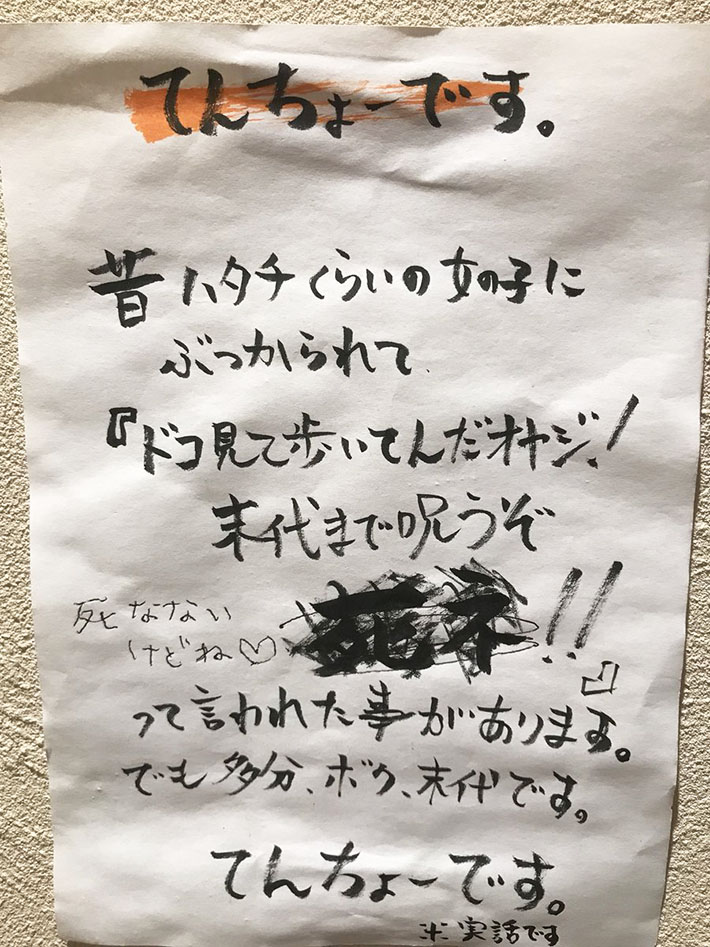 てんちょーです。
昔ハタチくらいの女の子に
ぶつかられて
『ドコ見て歩いてんだオヤジ!
末代まで呪うぞ
死ネ!!』
死なない
けどね♡
って言われた事があります。
でも多分、ボク、末代です。
てんちょーです。
※実話です